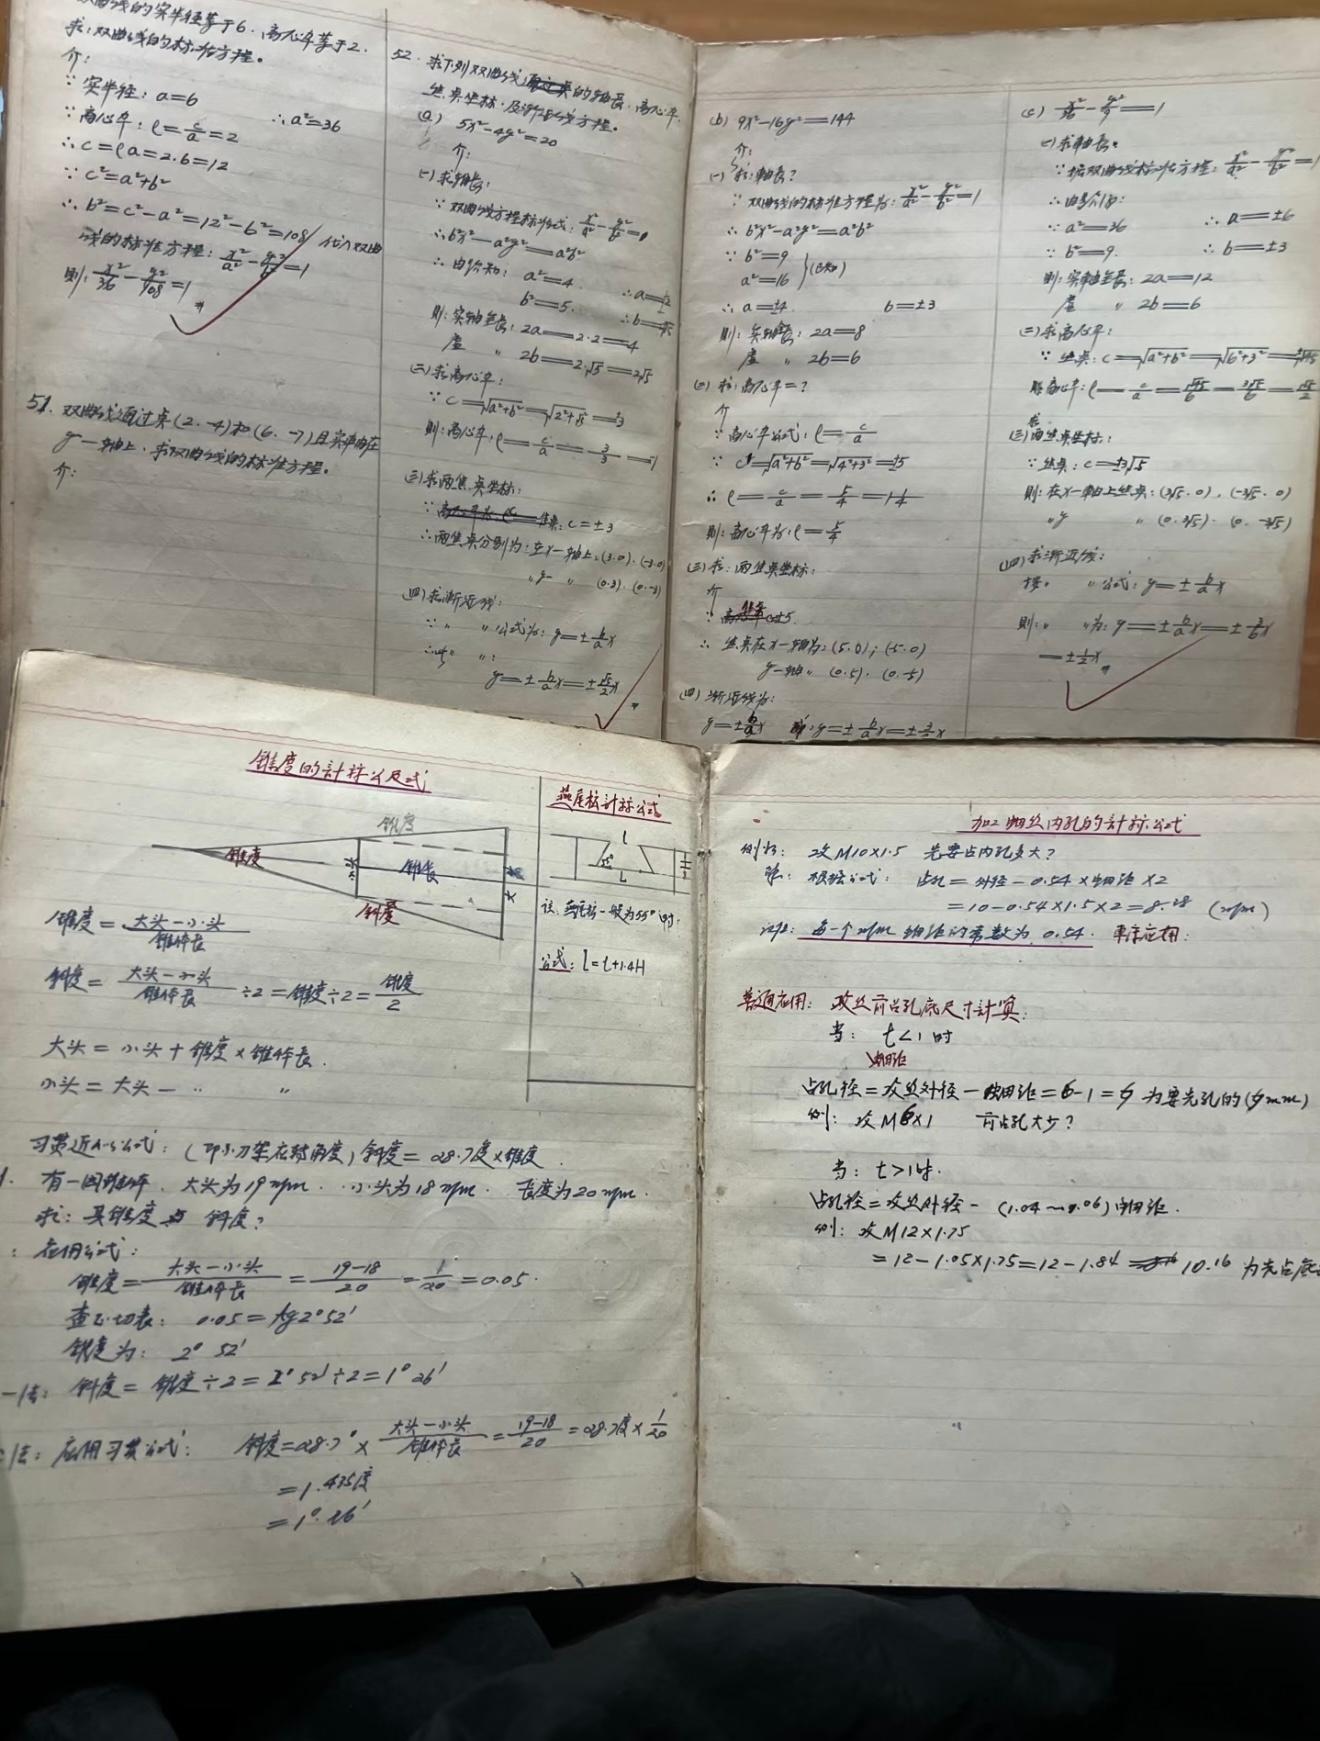 双曲线的实半径等于6.离心率等于2.
求:双曲线的标准方程。
介:
∵实半径: a=6 ∴a²=36
∵离心率: e=c/a=2
∴c=ea=2·6=12
∵c²=a²+b²
∴b²=c²-a²=12²-6²=108 代入双曲
线的标准方程: x²/a²-y²/b²=1
则: x²/36-y²/108=1
51. 双曲线通过点(2.-4)和(6.-7)且实轴在
y-轴上.求双曲线的标准方程。
介:
52. 求下列双曲线的轴长.离心率.
焦点坐标.及渐近线方程。
(a) 5x²-4y²=20
介:
(一)求轴长:
∵双曲线方程标准式: x²/a²-y²/b²=1
∴b²x²-a²y²=a²b²
∴由给知: a²=4. ∴a=±2
b²=5. ∴b=±√5
则:实轴全长: 2a=2·2=4
虚 〃 2b=2·√5=2√5
(二)求离心率:
∵c=√a²+b²=√2²+√5²=±3
则:离心率: e=c/a=
(三)求两焦点坐标:
焦点: c=±3
∴两焦点分别为:在x-轴上:(3.0).(-3.0)
〃y- 〃 (0.3).(0.-3)
(四)求渐近线:
∵ 〃 〃公式为: y=±b/a x
y=±b/a x=±√5/2 x
(b) 9x²-16y²=144
介:
(一)求:轴长?
∵双曲线的标准方程为: x²/a²-y²/b²=1
∴b²x²-a²y²=a²b²
∵b²=9
a²=16 (已知)
∴a=±4. b=±3
则:实轴长: 2a=8
虚 〃 2b=6
(二)求:离心率=?
介
∵离心率公式: e=c/a
∵c=√a²+b²=√4²+3²=±5
∴e=c/a=5/4=1¼
则:离心率为: e=5/4
(三)求:两焦点坐标:
介
∴焦点在x-轴为:(5.0);(-5.0)
y-轴〃 (0.5).(0.-5)
(四)渐近线为:
y=±b/a x y=±b/a x=±3/4 x
(c) x²/36-y²/9=1
(一)求轴长。
∵据双曲线标准方程: x²/a²-y²/b²=1
∴由给介得:
∵a²=36 ∴a=±6
∵b²=9. ∴b=±3
则:实轴全长: 2a=12
虚 〃 2b=6
(二)求离心率:
∵焦点: c=√a²+b²=√6²+3²=±√45
则离心率: e=c/a=√45/6=3√5/6=√5/2
(三)求两焦点坐标:
∵焦点: c=±3√5
则:在x-轴上焦点:(3√5.0).(-3√5.0)
〃y 〃 (0.3√5).(0.-3√5)
(四)求渐近线:
按. 〃公式: y=±b/a x
则:〃 〃为: y=±b/a x=±3/6 x
=±1/2 x
锥度的计标公及式
斜度
锥度 小头 锥长 大头
斜度
锥度=大头-小头/锥体长
斜度=大头-小头/锥体长÷2=锥度÷2=锥度/2
大头=小头+锥度×锥体长.
小头=大头- 〃 〃
习惯近似公式:(即小刀架应转角度)斜度=28.7度×锥度.
有一圆锥体. 大头为19mm. 小头为18mm. 长度为20mm.
求:其锥度与斜度?
应用公式:
锥度=大头-小头/锥体长=19-18/20=1/20=0.05.
查正切表: 0.05=tg2°52′
锥度为: 2° 52′
一法: 斜度=锥度÷2=2°52′÷2=1°26′
二法: 应用习惯公式: 斜度=28.7°×大头-小头/锥体长=19-18/20=28.7度×1/20
=1.435度
=1°.26′
燕尾松计标公式
l
55°
L
注.燕尾松一般为55°时.
公式: l=t+1.4H
加工螺丝内孔的计标公式
例如: 攻M10×1.5 先要占内孔多大?
解: 根据公式: 占孔=外径-0.54×螺距×2
=10-0.54×1.5×2=8.38 (mm)
注: 每一个mm螺距的常数为0.54.
普通应用: 攻丝前占孔底尺寸计算:
当: t<1时
螺距
占孔径=攻丝外径-螺距=6-1=5为要先孔的(5mm)
例: 攻M6×1 前占孔大多?
当: t>1时.
占孔径=攻丝外径-(1.04~1.06)螺距.
例: 攻M12×1.75
=12-1.05×1.75=12-1.84= 10.16为先占底